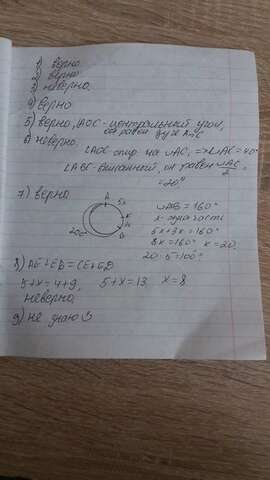 1) верно
2) верно
3) неверно.
4) верно
5) верно, ∠AOC - центральный угол,
он равен дуге AnC
6) неверно.
∠AOC опир на ∪AC, => ∪AC = 40°
∠ABC - вписанный, он равен ∪AC/2 =
= 20°
7) верно
A 5x
∪AB = 160°
K
x - одна часть
B
5x + 3x = 160°
200
8x = 160° x = 20,
20 · 5 = 100°
8) AE + EB = CE + ED
5 + x = 4 + 9, 5 + x = 13 x = 8
неверно,
9) не знаю